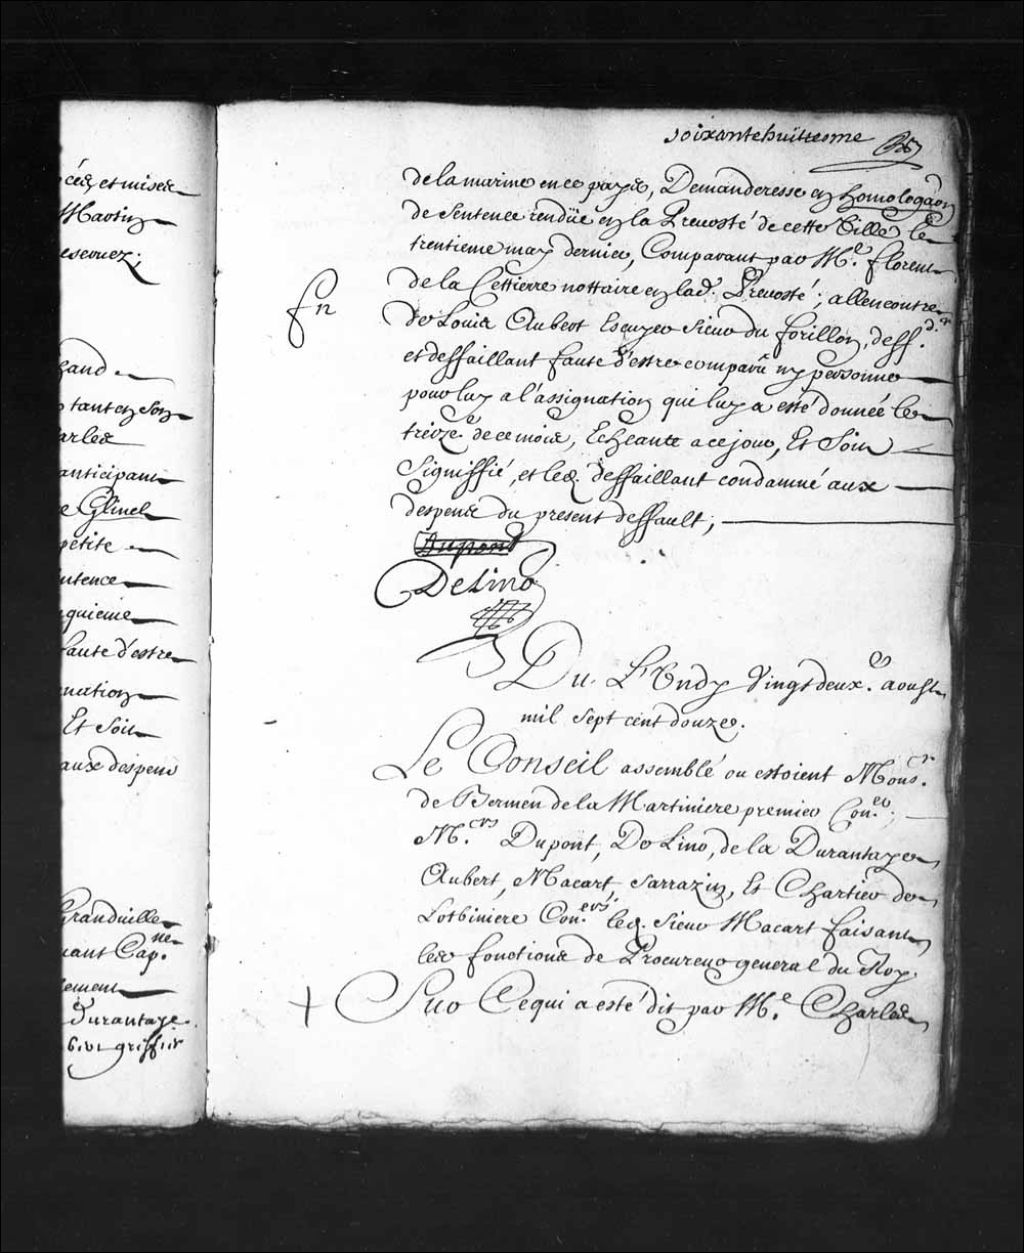 céz, et mises
Martin
eserver;
hand.
tant en son
arles
anticipant
e Glinel
petite
ntence
quieme
faute d'estre
nation
Et soit
aux despens
Granduille
uant Cap.ne
lement
Durantaye
griffier
soixante huittesme
de la marine en ce pays, Demanderesse en homologãon
de Sentence rendüe en la Prevosté de cette Ville le
trentieme may dernier, Comparant par M.e florent
de la Cettierre nottaire en lad. Prevosté; allencontre
fn
de Louis Aubert Escuyer Sieur du forillon, deff.d.r
et deffaillant faute d'estre comparu ny personne
pour luy a l'assignation qui luy a esté donnée le
treize.e de ce mois, Echeante a ce jour, Et Soit
Signiffié, et led. deffaillant condamné aux
despens du present deffault;
Dupont
DeLino
Du. LUndy Vingt deux.e aoust
mil sept cent douze.
Le Conseil assemblé ou estoient Mons.r
de Bermen de la Martiniere premier Con.er;
M.ers Dupont, De Lino, de la Durantaye
Aubert, Macart, Sarrazin, Et Chartier de
Lotbiniere Con.ers led. Sieur Macart faisant
les fonctions de Procureur general du Roy.
+ Sur Ce qui a esté dit par M.e Charles